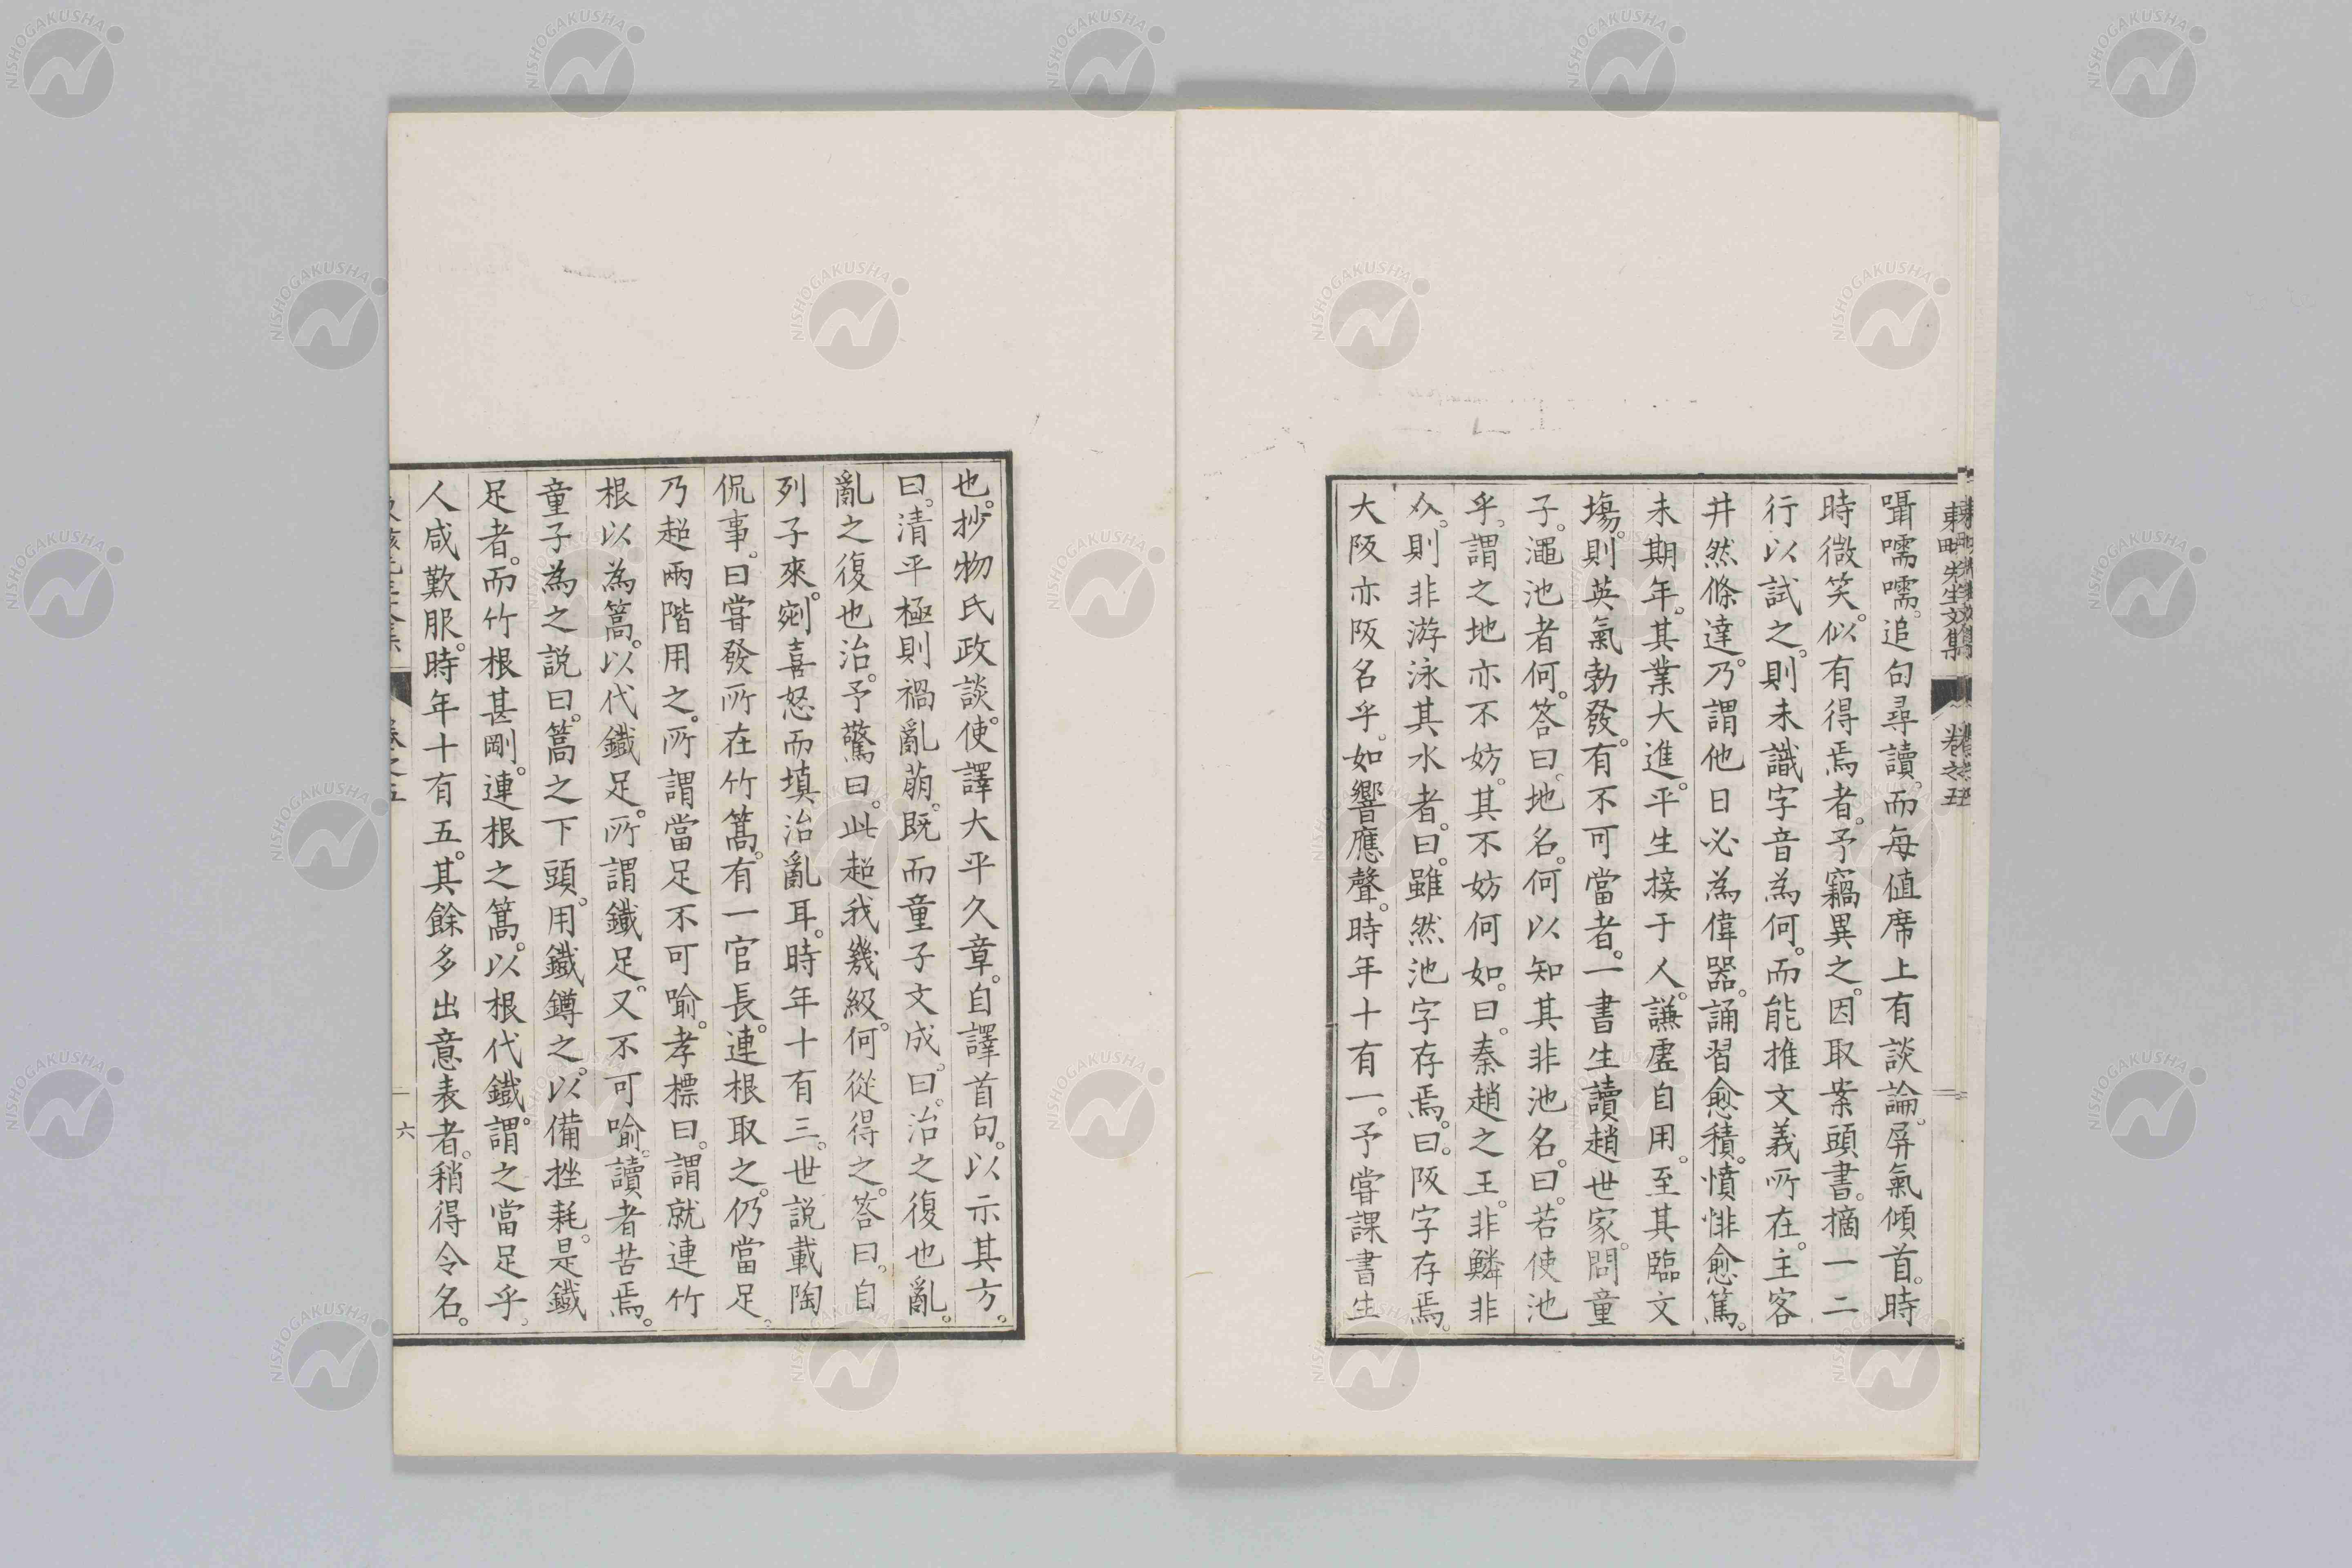 囁嚅嚅。追句尋讀。而每値席上有談論。屏氣傾首。時
時微笑。似有得焉者。予竊異之。因取案頭書。摘一二
行以試之。則未識字音為何。而能推文義所在。主客
井然條達。乃謂他日必為偉器。誦習愈積。憤悱愈篤。
未期年。其業大進。平生接于人。謙虛自用。至其臨文
塲。則英氣勃發。有不可當者。一書生讀趙世家。問童
子。澠池者何。答曰。地名。何以知其非池名。曰。若使池
乎。謂之地亦不妨。其不妨何如。曰。秦趙之王。非鱗非
介。則非游泳其水者。曰。雖然池字存焉。曰。阪字存焉。
大阪亦阪名乎。如響應聲。時年十有一。予嘗課書生
也。抄物氏政談。使譯大平久章。自譯首句。以示其方。
曰。清平極則禍亂萠。既而童子文成。曰。治之復也亂。
亂之復也治。予驚曰。此超我幾級。何從得之。答曰。自
列子來。剜喜怒而塡治亂耳。時年十有三。世説載陶
侃事。曰嘗發所在竹篙。有一官長。連根取之。仍當足。
乃超兩階用之。所謂當足不可喩。孝標曰。謂就連竹
根以為篙。以代鐵足。所謂鐵足。又不可喩。讀者苦焉。
童子為之説曰。篙之下頭。用鐵鐏之。以備挫耗。是鐵
足者。而竹根甚剛。連根之篙。以根代鐵。謂之當足乎。
人咸歎服。時年十有五。其餘多出意表者。稍得令名。
六
NISHOGAKUSHA